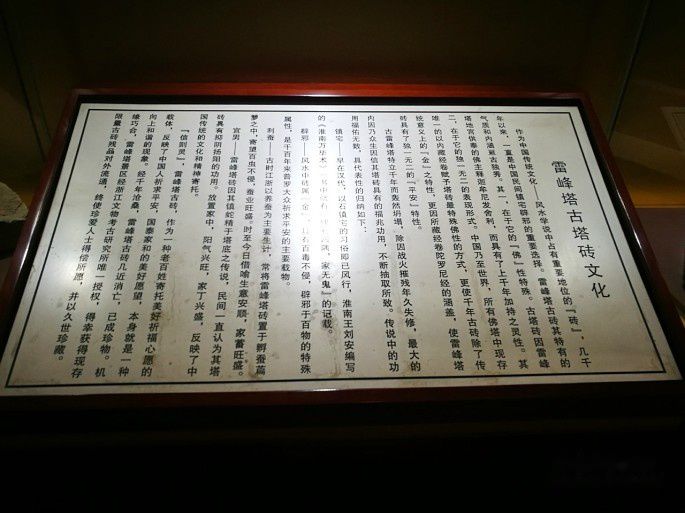 雷峰塔古塔砖文化
作为中国传统文化——风水学说中占有重要地位的『砖』，几千
年以来，一直是中国民间镇宅辟邪的重要选择。雷峰塔古砖其特有的
气质和内涵最古独秀。其一，在于它的『佛』性特殊。古塔砖因雷峰
塔地宫供奉的佛主释迦牟尼发舍利，而具有了上千年加持之灵性。其
二，在于它的独一无二的表现形式。中国乃至世界，所有佛塔中现存
唯一的以内藏经卷赋予塔砖最特殊佛性的方式，更使千年古砖除了传
统意义上的『金』之特性，更因所藏经卷陀罗尼经的涵盖，使雷峰塔
砖具有了独一无二的『平安』特性。
古雷峰塔特立千年而轰然坍塌，除因战火摧残年久失修，最大的
内因乃众生因信其塔砖具有的福兆功用，不断抽取所致。传说中的功
用福佑无数，具代表性的归纳如下：
镇宅——早在汉代，以石镇宅的习俗即已风行，淮南王刘安编写
的《淮南万毕术》书中就有 家无鬼』的记载。
辟邪——风水中砖属『金』，具有百毒不侵，辟邪于百物的特殊
属性，是千百年来普罗大众祈求平安的主要载物。
利蚕——古时江浙以养蚕为主要生计，常将雷峰塔砖置于孵蚕蒿
箩之中，寄望百虫不侵，蚕业旺盛。时至今日借喻生意安顺，家蓄旺盛。
宜男——雷峰塔砖因其镇蛇精于塔底之传说，民间一直认为其塔
砖具有抑阴扬阳的功用。放置家中，阳气兴旺，家丁兴盛，反映了中
国传统的文化和精神寄托。
『信则灵』，雷峰塔古砖，作为一种老百姓寄托美好祈福心愿的
载体，反映了中国人祈求平安，国泰家和的美好愿望，本身就是一种
向上和谐的现象。经千年沧桑，雷峰塔古砖几近消亡，已成珍物。机
缘巧合，雷峰塔景区经浙江文物考古研究所唯一授权，得幸获得现存
限量古砖残品对外流通，终使珍爱人士得偿所愿，并以久世珍藏。